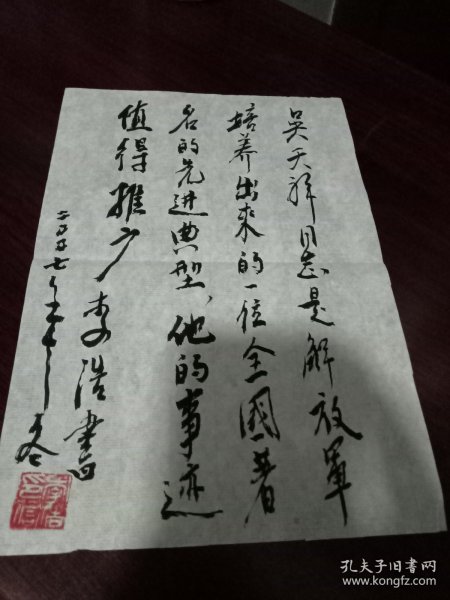 吴天祥同志是解放軍
培养出来的一位全國著
名的先进典型、他的事迹
值得推广 李浩書
二〇〇七年
孔夫子旧书网
www.kongfz.com